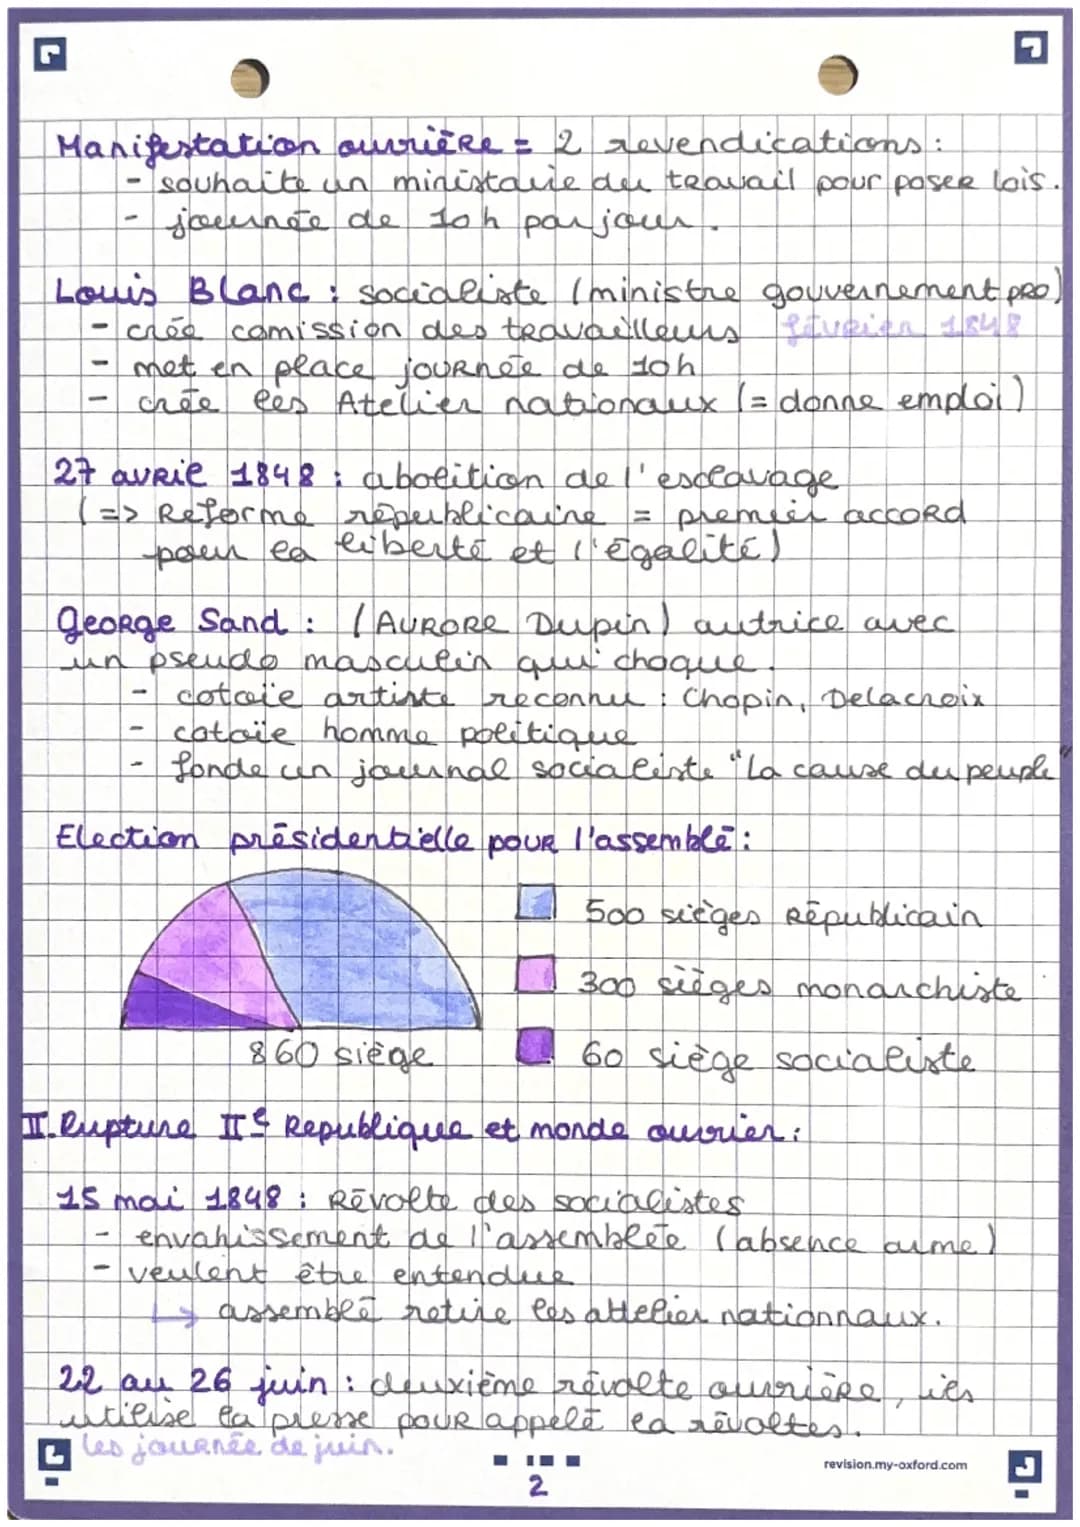 Manifestation ouvrière = 2 revendications :
- souhaite un ministaire du travail pour poser lois.
- journée de 10h par jour.
Louis Blanc : socialiste (ministre gouvernement pro)
- crée comission des travailleurs février 1848
- met en place journée de 10h
- crée les Atelier nationaux (= donne emploi)
27 avril 1848 : abolition de l'esclavage
(=> Reforme républicaine = premier accord
pour la liberté et l'égalité)
George Sand : (Aurore Dupin) autrice avec
un pseudo masculin qui choque.
- cotoie artiste reconnu : Chopin, Delacroix
- cotoïe homme politique
- fonde un journal socialiste "La cause du peuple"
Election présidentielle pour l'assemblé :
500 sièges Républicain
300 sièges monarchiste
860 siège
60 siège socialiste
II. Rupture IIe Republique et monde ouvrier :
15 mai 1848 : Révolte des socialistes
- envahissement de l'assemblée (absence arme)
- veulent être entendue
↳ assemblé retire les attelier nationnaux.
22 au 26 juin : deuxième révolte ouvrière, ils
utilise la presse pour appelé la révoltes.
les journée de juin.
revision.my-oxford.com
2